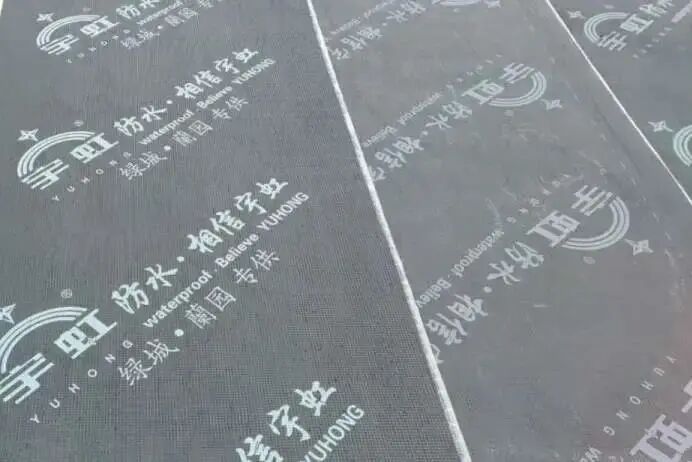 YUHONG
绿城·蘭园 专供
waterproof · Believe YUHONG
®
宇虹 防水·相信宇虹
waterproof · Believe YUHONG
YUHONG 绿城·蘭园 专供
®
宇虹 防水·相信宇虹
waterproof · Believe YUHONG
YUHONG 绿城·蘭园 专供
相信宇虹
Believe YUHONG
®
宇虹 防水·相信
waterproof · Believe
YUHONG
®
宇虹 防水·相信宇
waterproof · Believe
YUHONG
YUHONG